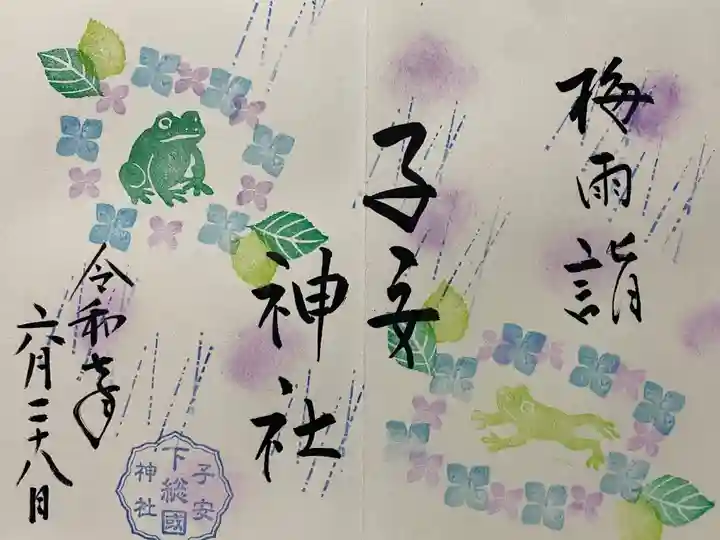 梅雨詣
子安
神社
令和七年
六月二十八日
子安
下総國
神社